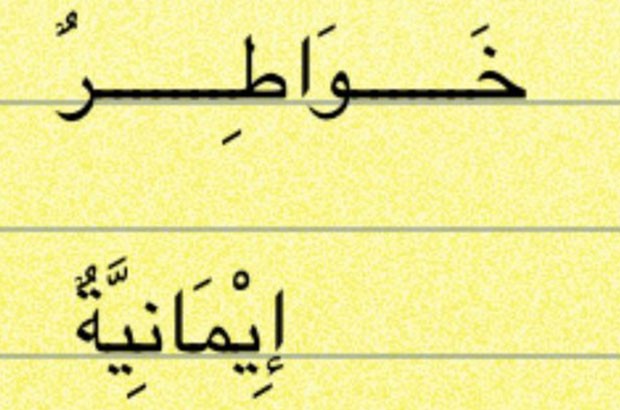 خَـــوَاطِـــرٌ
إِيْمَانِيَّةٌ